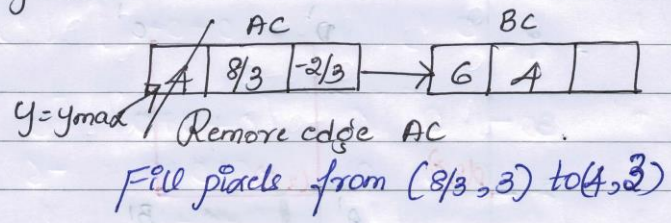 AC BC
4 8/3 -2/3 6 4
y=ymax Remore edge AC
Fill pixels from (8/3, 3) to (4, 3)